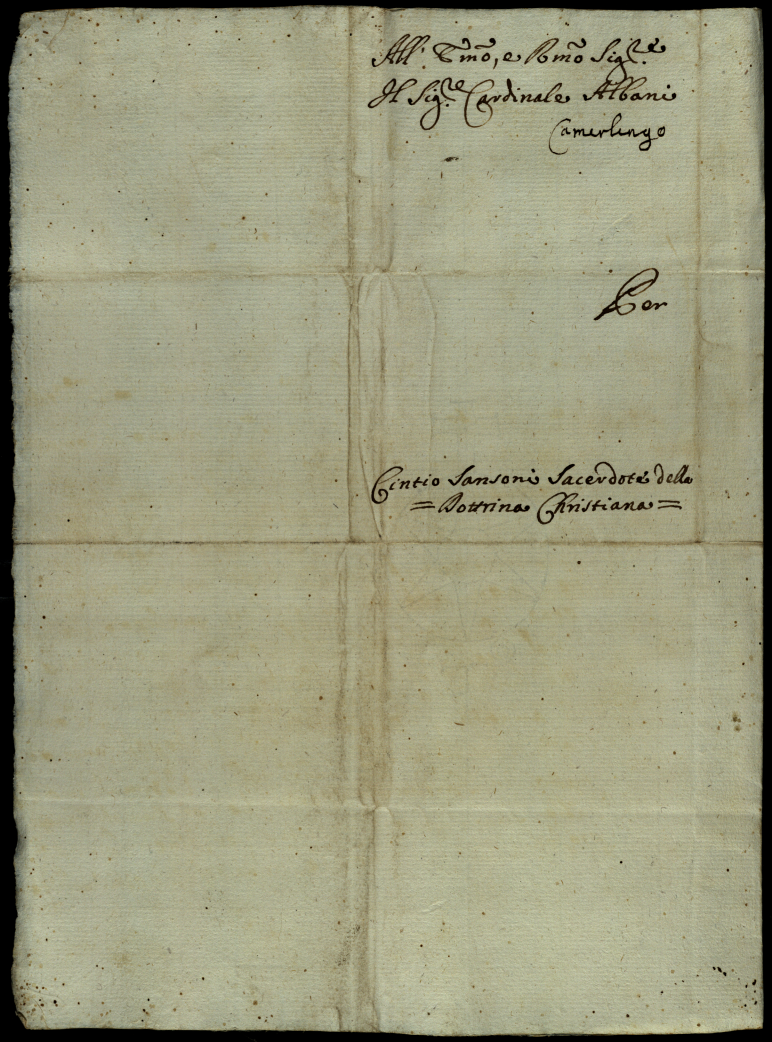 All' Em̃o, e Rm̃o Sig.re
Il Sig.re Cardinale Albani
Camerlengo
Per
Cintio Sansoni Sacerdote della
= Dottrina Christiana =